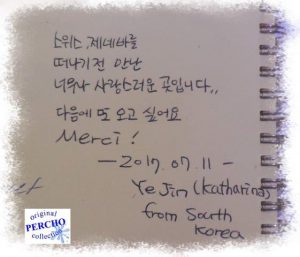 스위스, 제네바를
떠나기전 만난
너무나 사랑스러운 곳입니다..
다음에 또 오고 싶어요
Merci!
— 2017. 07. 11 —
YeJin (Katharina)
from South
Korea
original
PERCHO
collection